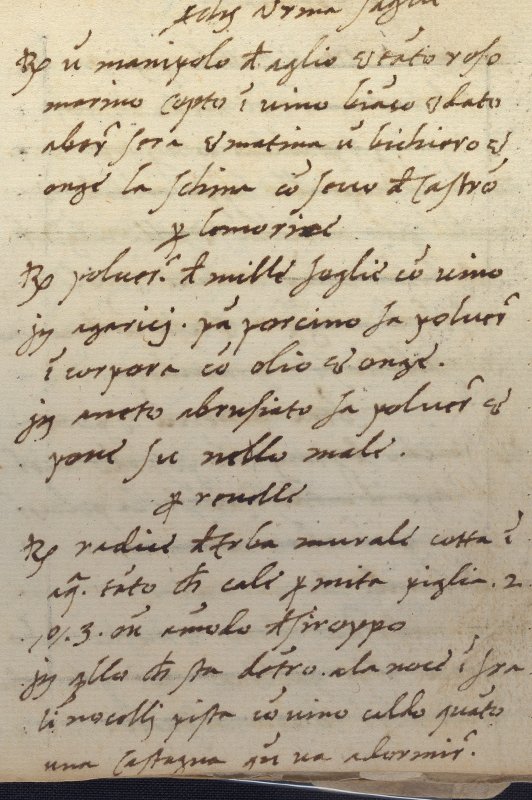 ℞ ū manipolo đ aglio et tāto roso
marino copto ī vino biāco et dato
a ber̃ sera et matina ū bichiero et
onge la schina cō sevo đ castrō
ꝑ lemorine
℞ polver̃ đ mille foglie cō vino
jn agarici. pā porcino fa polver̃
īcorpora cō olio et onge.
jn aneto abrusiato fa polver̃ et
pone su nello male.
ꝑ renelle
℞ radice đ erba murale cotta ī
aq̃. tāto ch̄ cale ꝑ mita piglia. 2
o 3. on̄ a modo đ siroppo
jn q̃llo ch̄ sta dētro. a la noce ī fra
li nocelli pista cō vino caldo quāto
una castagna qn̄ va a dormir̃.